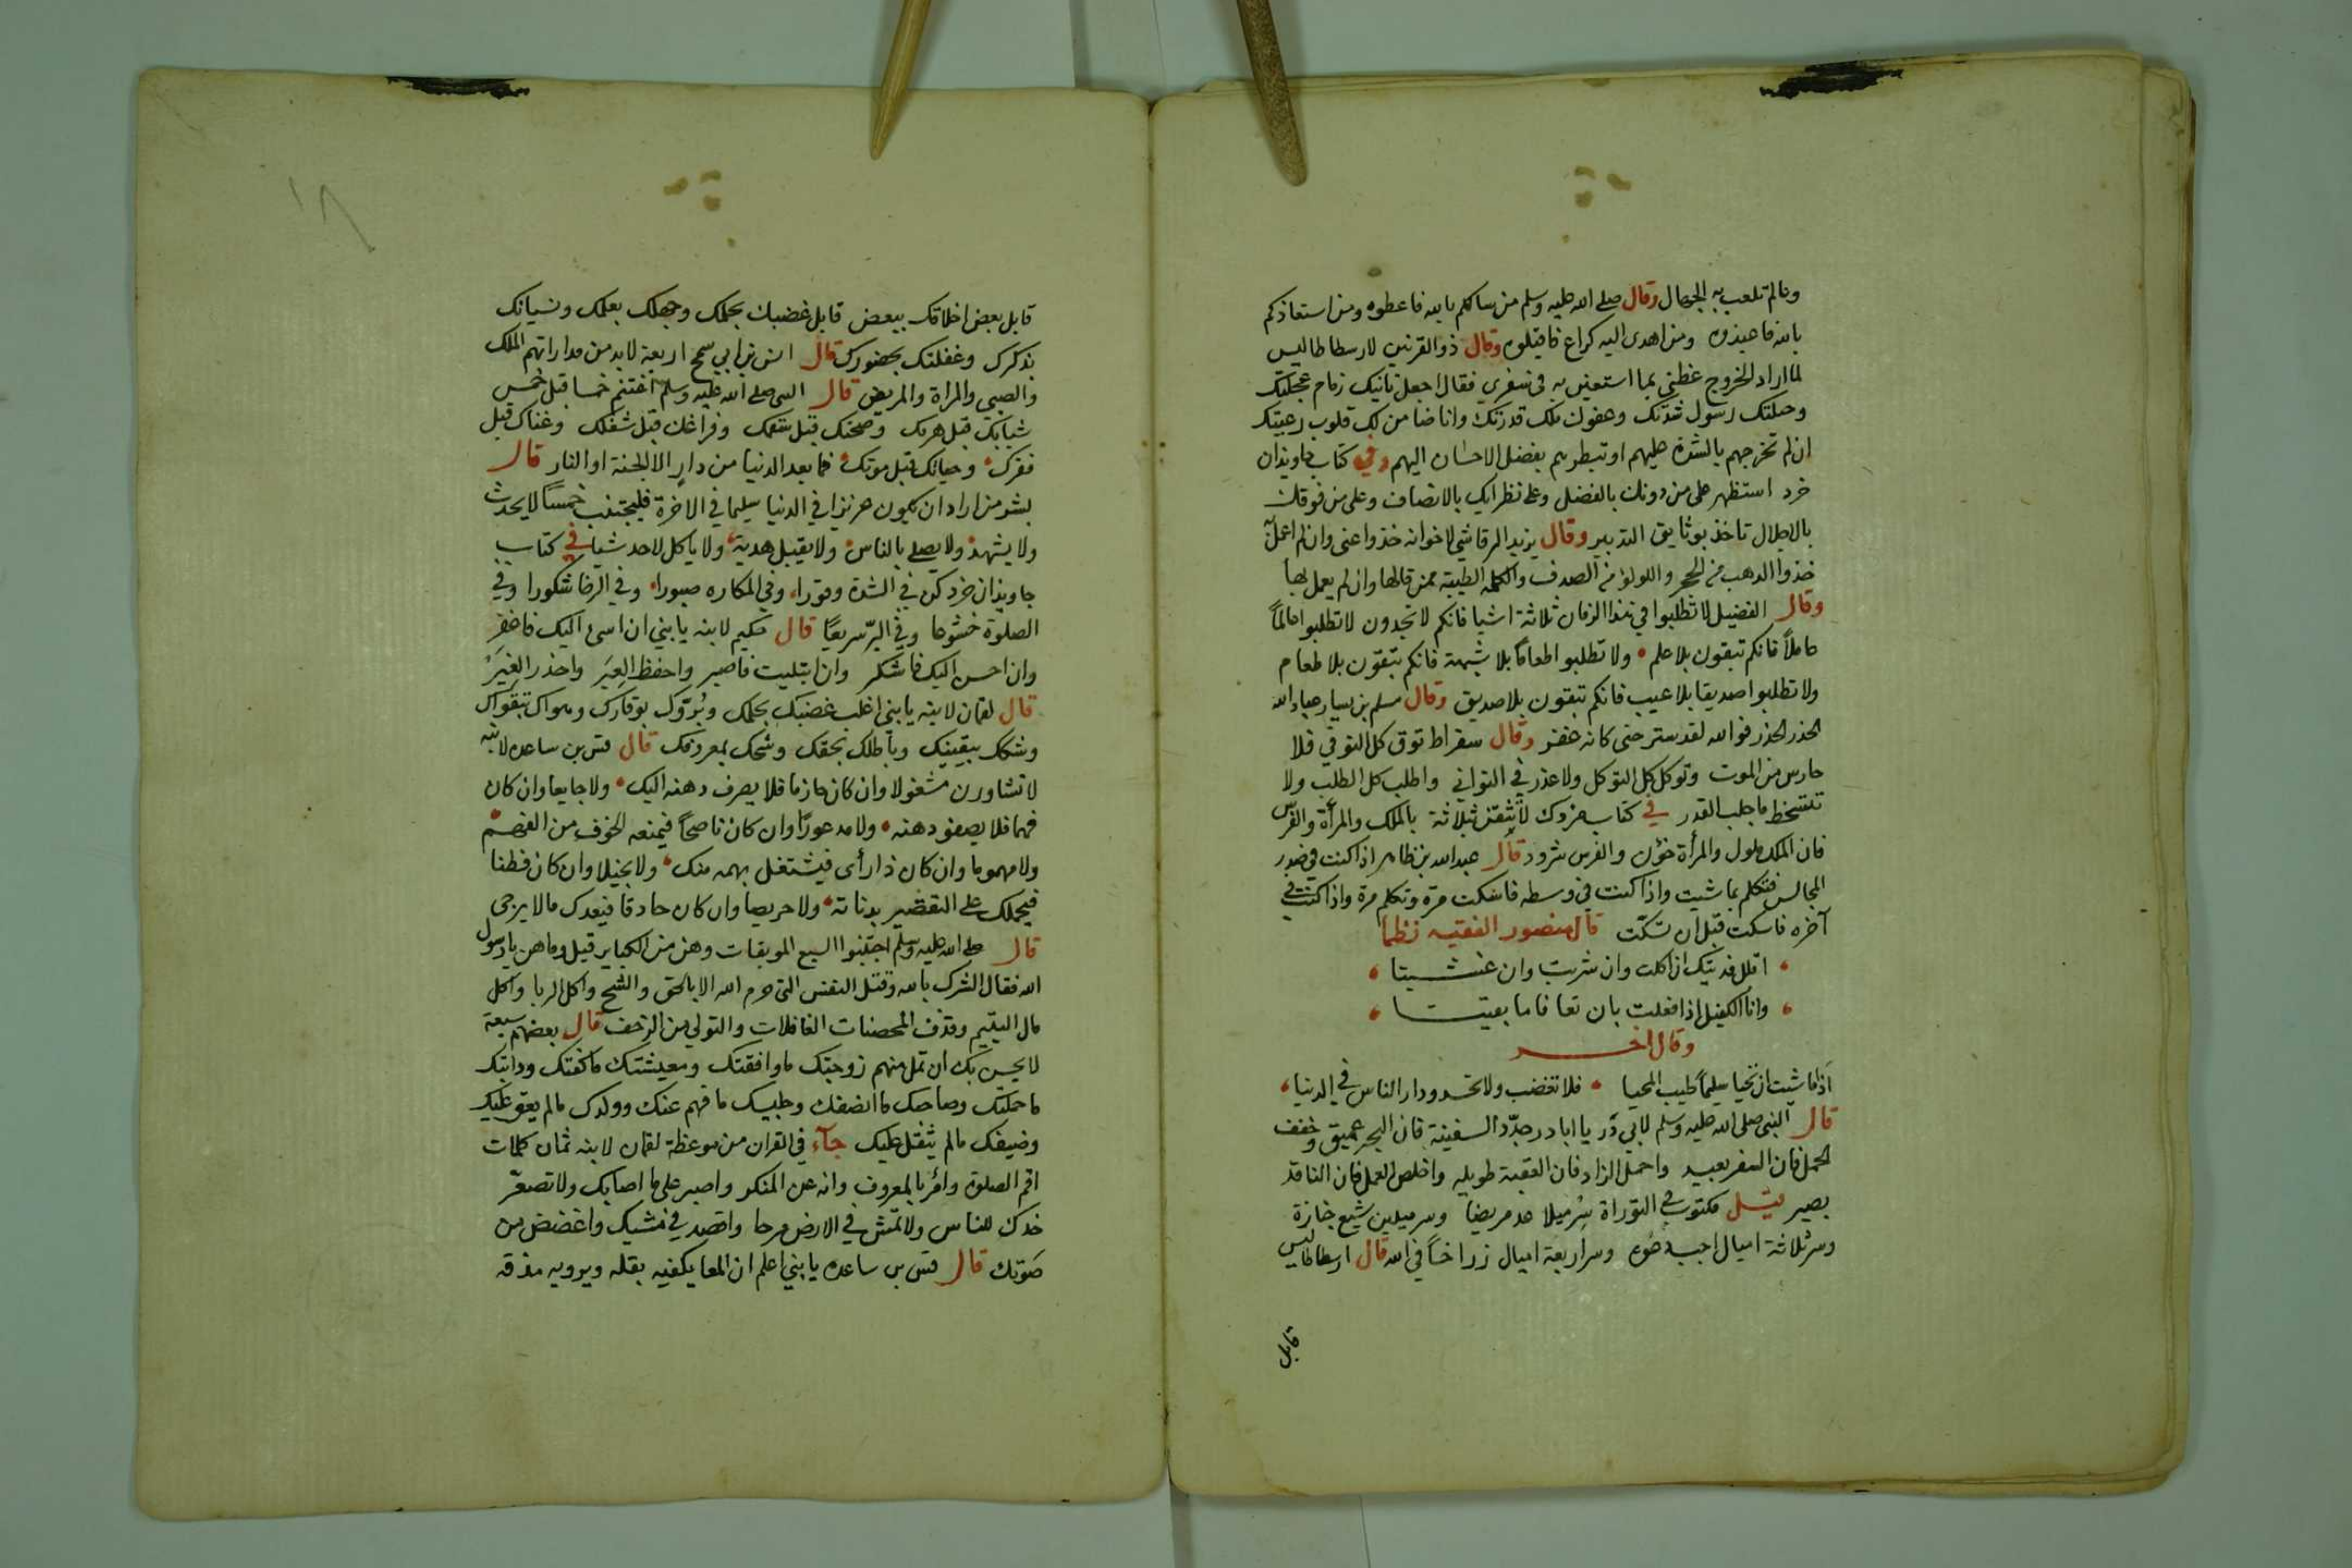 ومالم تلعب به الجهال وقال صلى الله عليه وسلم من سالكم بالله فاعطوه ومن استعاذكم
بالله فاعيذوه ومن اهدى اليه كراع فاقبلوه وقال ذو القرنين لارسطاطاليس
لما اراد الخروج عظني بما استعين به في سفري فقال اجعل تانيك زمام عجلتك
وحيلتك رسول شدتك وعفوك ملك قدرتك وانا ضامن لك قلوب رعيتك
ان لم تحرجهم بالشدة عليهم او تبطرهم بفضل الاحسان اليهم وفي كتاب جاويذان
خرد استظهر على من دونك بالفضل وعلى نظرايك بالانصاف وعلى من فوقك
بالاجلال تاخذ بوثايق التدبير وقال يزيد الرقاشي لاخوانه خذوا عني وان لم اعمل
خذوا الذهب من الحجر واللولؤ من الصدف والكلمه الطيبة ممن قالها وان لم يعمل بها
وقال الفضيل لا تطلبوا في هذا الزمان ثلاثة اشيا فانكم لا تجدون لا تطلبوا عالماً
عاملاً فانكم تبقون بلا علم ولا تطلبوا طعاما بلا شبهة فانكم تبقون بلا طعام
ولا تطلبوا صديقا بلا عيب فانكم تبقون بلا صديق وقال مسلم بن يسار عباد الله
الحذر الحذر فوالله لقد ستر حتى كانه غفر وقال سقراط توق كل التوقي فلا
حارس من الموت وتوكل كل التوكل ولا عذر في التواني واطلب كل الطلب ولا
تتسخط ما جلب القدر في كتاب مزدك لا تثقن بثلاثة بالملك والمرأة والفرس
فان الملك ملول والمرأة خؤن والفرس شرود قال عبد الله بن طاهر اذا كنت في صدر
المجالس فتكلم بما شيت واذا كنت في وسطه فاسكت مرة وتكلم مرة واذا كنت في
آخره فاسكت قبل ان تسكت قال منصور الفقيه نظما
اقلل فديتك ان اكلت وان شربت وان غشيتا
وانا الكفيل اذا فعلت بان تعافا ما بقيتا
وقال اخر
اذا ما شيت ان تحيا سليماً طيب المحيا فلا تغضب ولا تحسد ودار الناس في الدنيا
قال النبي صلى الله عليه وسلم لابي ذر يا ابا ذر جدّد السفينة فان البحر عميق وخفف
الحمل فان السفر بعيد واحمل الزاد فان العقبة طويله واخلص العمل فان الناقد
بصير قيل مكتوب في التوراة سِر ميلا عد مريضا وسر ميلين شيع جنازة
وسر ثلاثة اميال اجب دعوه وسر اربعة اميال زر اخاً في الله قال ارسطاطاليس
قابل
قابل بعض اخلاقك ببعض قابل غضبك بحلمك وجهلك بعلمك ونسيانك
بذكرك وغفلتك بحضورك قال انس بن ابي اربعة لابد من مداراتهم الملك
والصبي والمراة والمريض قال النبي صلى الله عليه وسلم اغتنم خمسا قبل خمس
شبابك قبل هرمك وصحتك قبل سقمك وفراغك قبل شغلك وغناك قبل
فقرك وحياتك قبل موتك فما بعد الدنيا من دار الا الجنة او النار قال
بشر من اراد ان يكون عزيزا في الدنيا سليما في الاخرة فليجتنب خمساً لا يحدث
ولا يشهد ولا يصلي بالناس ولا يقبل هدية ولا ياكل لاحد شيا في كتاب
جاويذان خرد كن في الشدة وقورا وفي المكاره صبورا وفي الرخا شكورا وفي
الصلوة خشوعا وفي البرّ سريعًا قال حكيم لابنه يا بني ان اسئ اليك فاغفر
وان احسن اليك فاشكر وان ابتليت فاصبر واحفظ العِبَر واحذر الغِيَر
قال لقمان لابنه يا بني اغلب غضبك بحلمك ونُزّوك بوقارك وهواك بتقواك
وشكك بيقينك وباطلك بحقك وشحك بمعروفك قال قس بن ساعده لابنه
لا تشاورن مشغولا وان كان حازما فلا يصرف ذهنه اليك ولا جايعا وان كان
فهما فلا يصفو ذهنه ولا مدعورًا وان كان ناصحاً فيمنعه الخوف من الفهم
ولا مهموما وان كان ذا رأى فيشتغل بهمه منك ولا بخيلا وان كان فطنا
فيحملك على التقصير بدناته ولا حريصا وان كان حاذقا فيعدك مالا يرجى
قال صلى الله عليه وسلم اجتنبوا السبع الموبقات وهن من الكباير قيل وما هن يا رسول
الله فقال الشرك بالله وقتل النفس التي حرم الله الا بالحق والشح واكل الربا واكل
مال اليتيم وقذف المحصنات الغافلات والتولي من الزحف قال بعضهم سبعة
لا يحسن بك ان تمل منهم زوجتك ما وافقتك ومعيشتك ما كفتك ودابتك
ما حملتك وصاحبك ما انصفك وجليسك ما فهم عنك وولدك مالم يعق عليك
وضيفك مالم يثقل عليك جآء في القران من موعظة لقمان لابنه ثمان كلمات
اقم الصلوة وامُر بالمعروف وانه عن المنكر واصبر على ما اصابك ولا تصعّر
خدك للناس ولا تمش في الارض مرحا واقصد في مشيك واغضض من
صَوتك قال قس بن ساعده يا بني اعلم ان المعا يكفيه بقله ويرويه مذقه
١٨